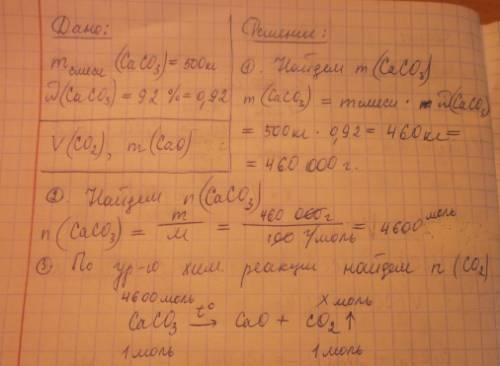 Дано:
m смеси (CaCO₃) = 500 кг
D(CaCO₃) = 92 % = 0,92
V(CO₂), m(CaO)
Решение:
①. Найдем m(CaCO₃)
m(CaCO₃) = m смеси · D(CaCO₃)
= 500кг · 0,92 = 460 кг =
= 460 000 г.
②. Найдем n(CaCO₃)
n(CaCO₃) = m/M = 460 000г / 100 г/моль = 4600 моль
③. По ур-ю хим реакции найдем n(CO₂)
4600 моль x моль
CaCO₃ t° → CaO + CO₂ ↑
1 моль 1 моль